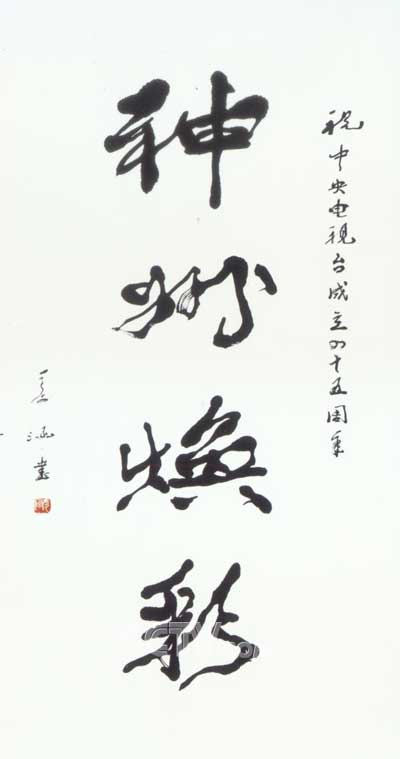 祝中央电视台成立四十五周年
神州焕彩